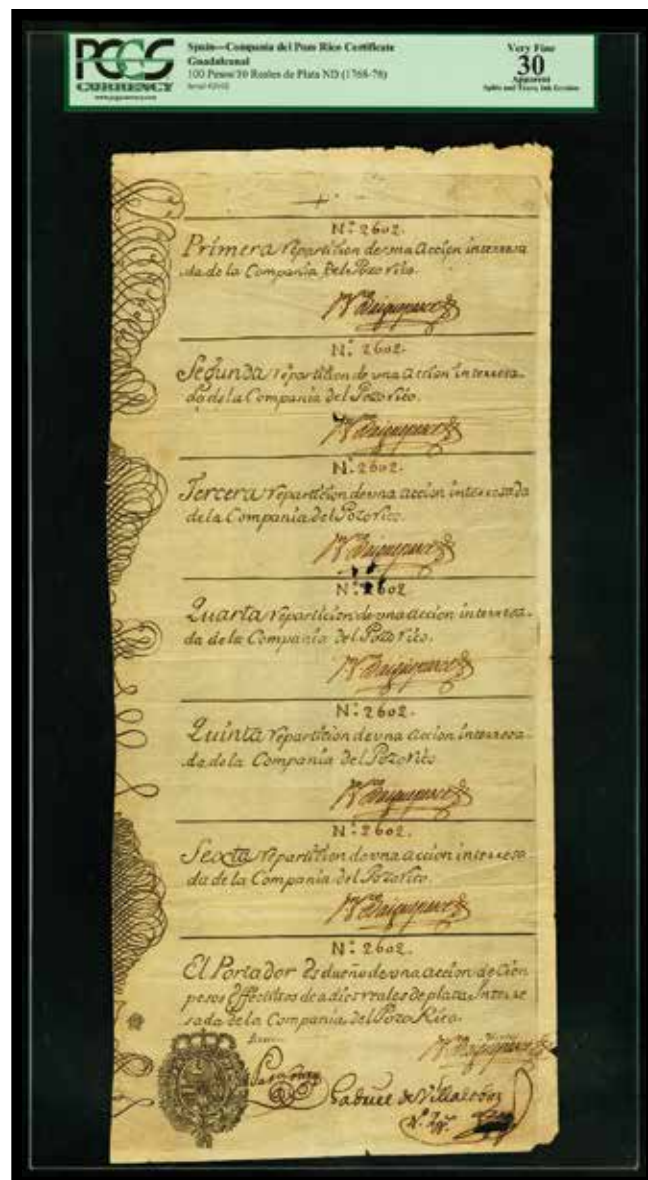 PCGS
CURRENCY
www.pcgscurrency.com
Spain—Compania del Pozo Rico Certificate
Guadalcanal
100 Pesos/10 Reales de Plata ND (1768-78)
Very Fine
30
Apparent
Splits and Tears, Ink Erosion
Nº 2602.
Primera repartition de una accion interesa
da de la Compania Del Pozo rico.
Nº 2602.
Segunda repartition de una accion interesa-
da de la Compania del Pozo rico.
Nº 2602.
Tercera repartition de una accion interesada
de la Compania del Pozo rico.
Nº 2602
Quarta repartition de una accion interesa-
da de la Compania del Pozo rico.
Nº 2602.
Quinta repartition de una accion interesa-
da de la Compania del Pozo rico
Nº 2602.
Sexta repartition de una accion interesa
da de la Compania del Pozo rico.
Nº 2602.
El Portador Es dueño de una accion de Cien
pesos Effectivos de a diez reales de plata Intere
sada de la Compania del Pozo Rico.
Gabriel de Villalobos